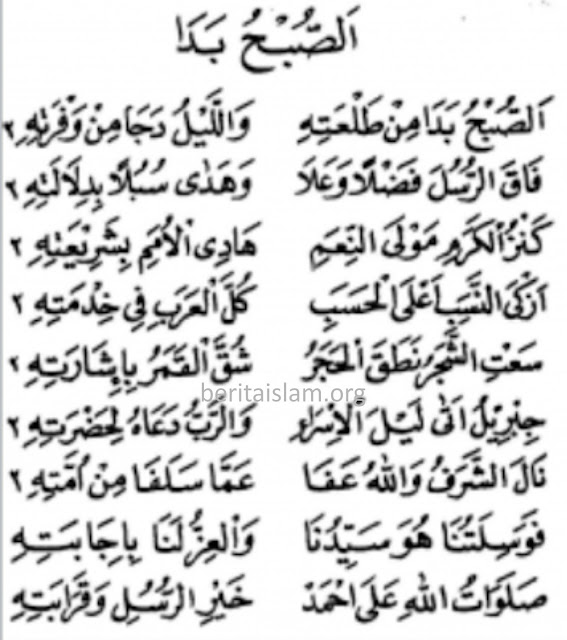 اَلصُّبْحُ بَدَا
اَلصُّبْحُ بَدَا مِنْ طَلْعَتِهِ وَاللَّيْلُ دَجَا مِنْ وَفْرَتِهِ ٢
فَاقَ الرُّسُلَ فَضْلًا وَعَلَا وَهَدٰى سُبُلًا بِدِلَالَتِهِ ٢
كَنْزُ الْكَرَمِ مَوْلَى النِّعَمِ هَادِى الْأُمَمِ بِشَرِيْعَتِهِ ٢
اَزْكَى النَّسَبِ اَعْلَى الْحَسَبِ كُلُّ الْعَرَبِ فِي خِدْمَتِهِ ٢
سَعَتِ الشَّجَرُ نَطَقَ الْحَجَرُ شُقَّ الْقَمَرُ بِإِشَارَتِهِ ٢
beritaislam.org
جِبْرِيْلُ اَتٰى لَيْلَ الْاِسْرَاءِ وَالرَّبُّ دَعَاهُ لِحَضْرَتِهِ ٢
نَالَ الشَّرَفُ وَاللّٰهُ عَفَا عَمَّا سَلَفَا مِنْ اُمَّتِهِ ٢
فَوَسِلَتُنَا هُوَ سَيِّدُنَا وَالْعِزُّ لَنَا بِاِجَابَتِهِ
صَلَوَاتُ اللّٰهِ عَلَى اَحْمَدْ خَيْرِ الرُّسُلِ وَقَرَابَتِهِ